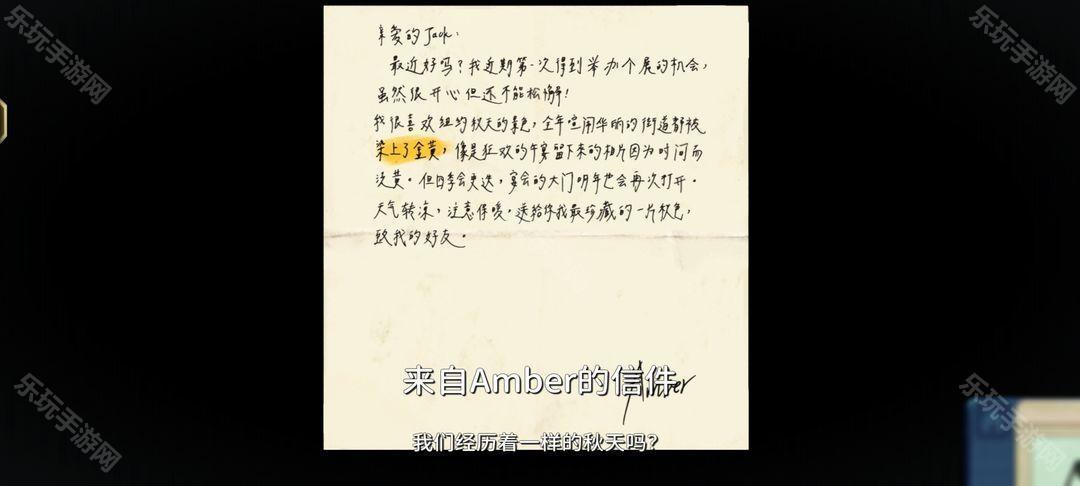 亲爱的Jack:
最近好吗?我近期第一次得到举办个展的机会,
虽然很开心但还不能松懈!
我很喜欢纽约秋天的景色,全年喧闹华丽的街道都被
染上了金黄,像是狂欢的午宴留下来的相片因为时间而
泛黄。但四季会更迭,宴会的大门明年也会再次打开。
天气转凉,注意保暖。送给你我最珍藏的一片秋色,
致我的好友。
Amber
来自Amber的信件
我们经历着一样的秋天吗?
乐玩手游网
乐玩手游网
乐玩手游网
乐玩手游网